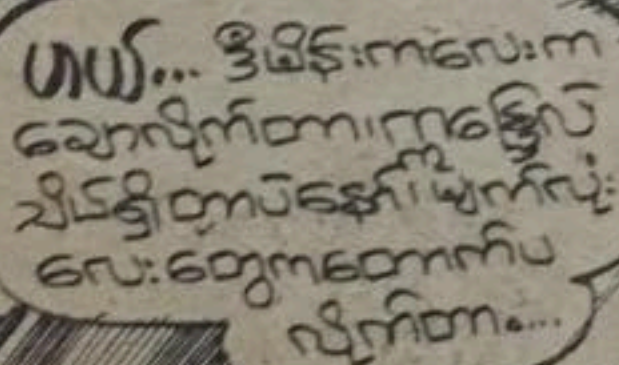 ဟယ်... ဒီမိန်းကလေးက
ချောလိုက်တာ၊ကာ
သိပ်ရှိတာပဲနော်၊ မျက်လုံး
လေးတွေကတောက်ပ
လိုက်တာ...